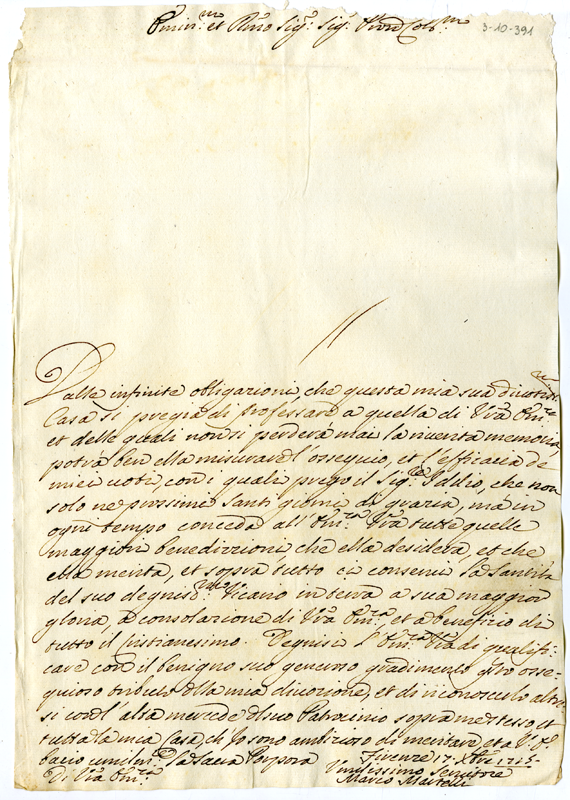 Emin.mo et Rmo Sig.r Sig.r Pron Col.mo
3-10-391
Dalle infinite obligazioni, che questa mia sua divotis.ma
Casa si pregia di professare a quella di Vra Em.za
et delle quali non si perderà mai la memoria,
potrà ben ella misurare l'ossequio, et l'efficacia de
miei voti, con i quali prego il Sig.re Iddio, che non
solo ne prossimi Santi giorni di grazia, mà in
ogni tempo conceda all' Em.za Vra tutte quelle
maggiori benedizzioni che ella desidera, et che
ella merita, et sopra tutto ci conservi la Santità
del suo degniss.mo Vicario in terra à sua maggior
gloria, à consolazione di Vra Em.za, et a benefizio di
tutto il Cristianesimo. Degnisi l'Em.za Vra di qualifi-
care con il benigno suo generoso gradimento osse-
quioso tributo della mia divozione, et di riconoscerlo altre
si con l'alta mercede del suo Patrocinio sopra me stesso, et
tutta la mia Casa, ch'Io sono ambizioso di meritare, et a V. E.
bacio umilm.te la Sacra Porpora
Firenze 17. Xbre 1715.
Di Vra Em.za
Umilissimo Servitore
Marco Martelli